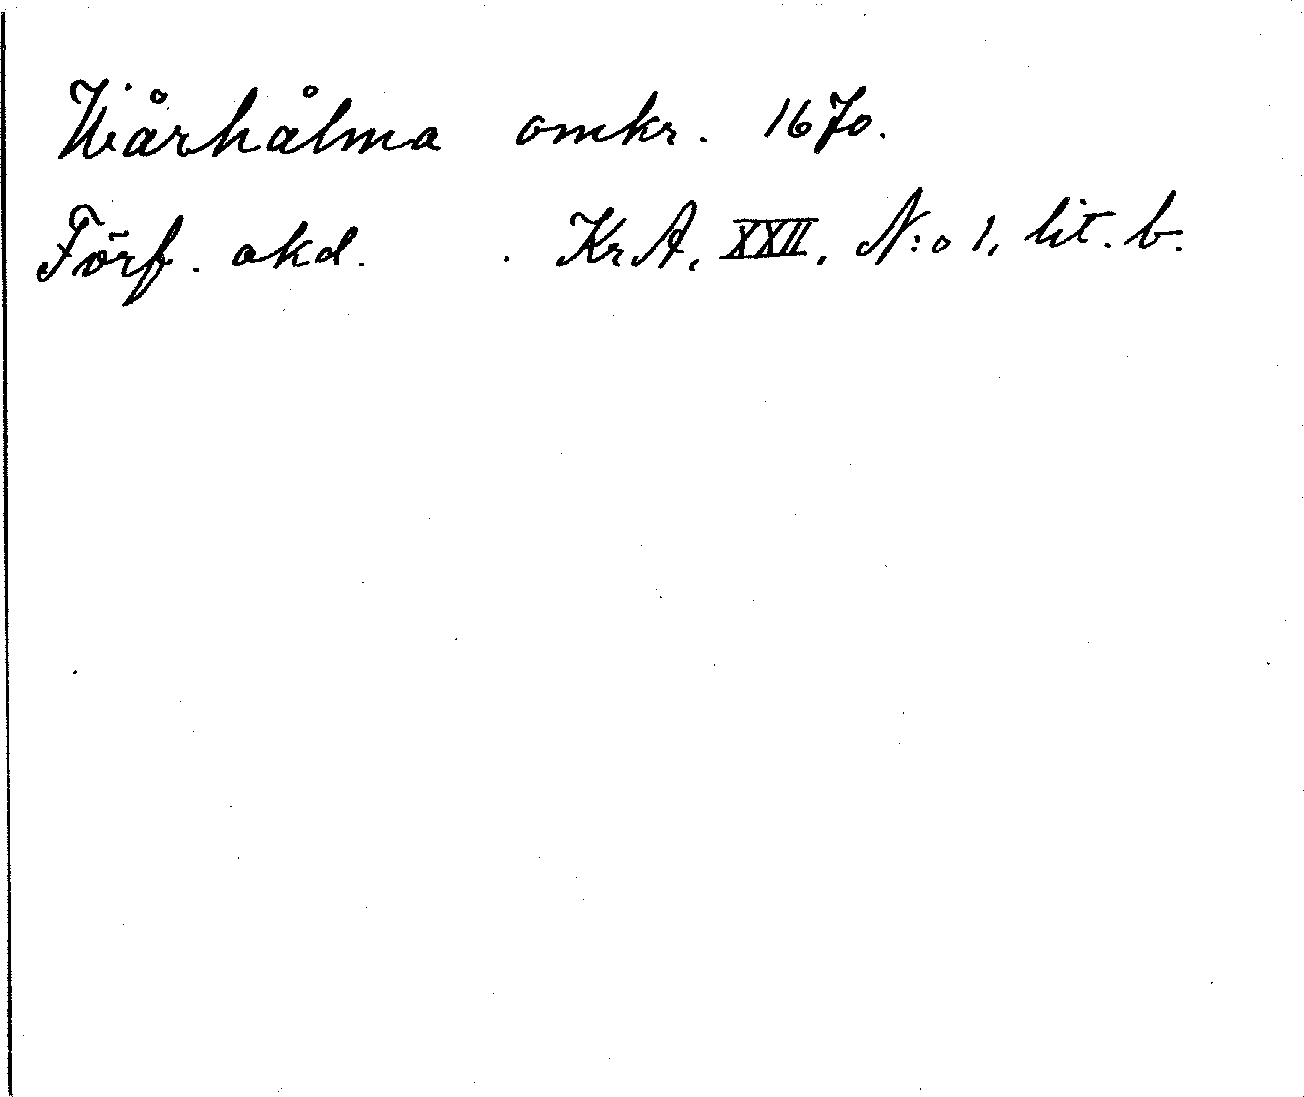 Wiårhålma omkr. 1670.
Förf. okd. . KrA, XXII, N:o 1, lit. b.